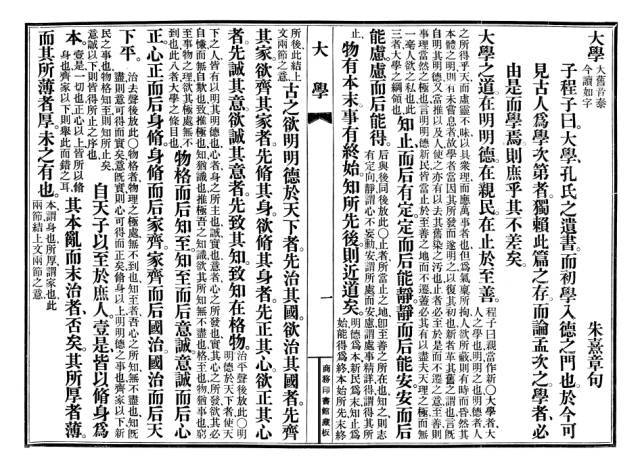 大學 大舊音泰今讀如字 朱熹章句
子程子曰。大學、孔氏之遺書。而初學入德之門也。於今可
見古人爲學次第者。獨賴此篇之存。而論孟次之。學者必
由是而學焉。則庶乎其不差矣。
大學之道。在明明德。在親民。在止於至善。
程子曰、親當作新○大學者、大
人之學也、明明之也、明德者、人
之所得乎天、而虛靈不昧、以具衆理而應萬事者也、但爲氣稟所拘、人欲所蔽、則有時而昏、然其
本體之明、則有未嘗息者、故學者當因其所發而遂明之、以復其初也、新者、革其舊之謂也、言旣
自明其明德、又當推以及人、使之亦有以去其舊染之污也、止者、必至於是而不遷之意、至善、則
事理當然之極也、言明明德新民、皆當止於至善之地而不遷、蓋必其有以盡夫天理之極、而無
一毫人欲之私也、此
三者、大學之綱領也、
知止而后有定。定而后能靜。靜而后能安。安而后
能慮。慮而后能得。
后與後同、後放此○止者、所當止之地、卽至善之所在也、知之、則志
有定向、靜謂心不妄動、安謂所處而安、慮謂處事精詳、得謂得其所
止、
物有本末。事有終始。知所先後。則近道矣。
明德爲本、新民爲末、知止爲
始、能得爲終、本始所先、末終
大學
一
商務印書館藏板
所後、此結上
文兩節之意、
古之欲明明德於天下者。先治其國。欲治其國者。先齊
其家。欲齊其家者。先脩其身。欲脩其身者。先正其心。欲正其心
者。先誠其意。欲誠其意者。先致其知。致知在格物。
治平聲、後放此○明
明德於天下者、使天
下之人、皆有以明其明德也、心者、身之所主也、誠、實也、意者、心之所發也、實其心之所發、欲其必
自慊而無自欺也、致、推極也、知猶識也、推極吾之知識、欲其所知無不盡也、格、至也、物猶事也、窮
至事物之理、欲其極處無不
到也、此八者、大學之條目也、
物格而后知至。知至而后意誠。意誠而后心
正。心正而后身脩。身脩而后家齊。家齊而后國治。國治而后天
下平。
治去聲、後放此○物格者、物理之極處無不到也、知至者、吾心之所知無不盡也、知旣
盡、則意可得而實矣、意旣實、則心可得而正矣、脩身以上、明明德之事也、齊家以下、新
民之事也、物格知至、則知所止矣、
意誠以下、則皆得所止之序也、
自天子以至於庶人。壹是皆以脩身爲
本。
壹是、一切也、正心以上、皆所以脩
身也、齊家以下、則舉此而錯之耳、
其本亂而末治者否矣。其所厚者薄。
而其所薄者厚。未之有也。
本、謂身也、所厚、謂家也、此
兩節結上文兩節之意、